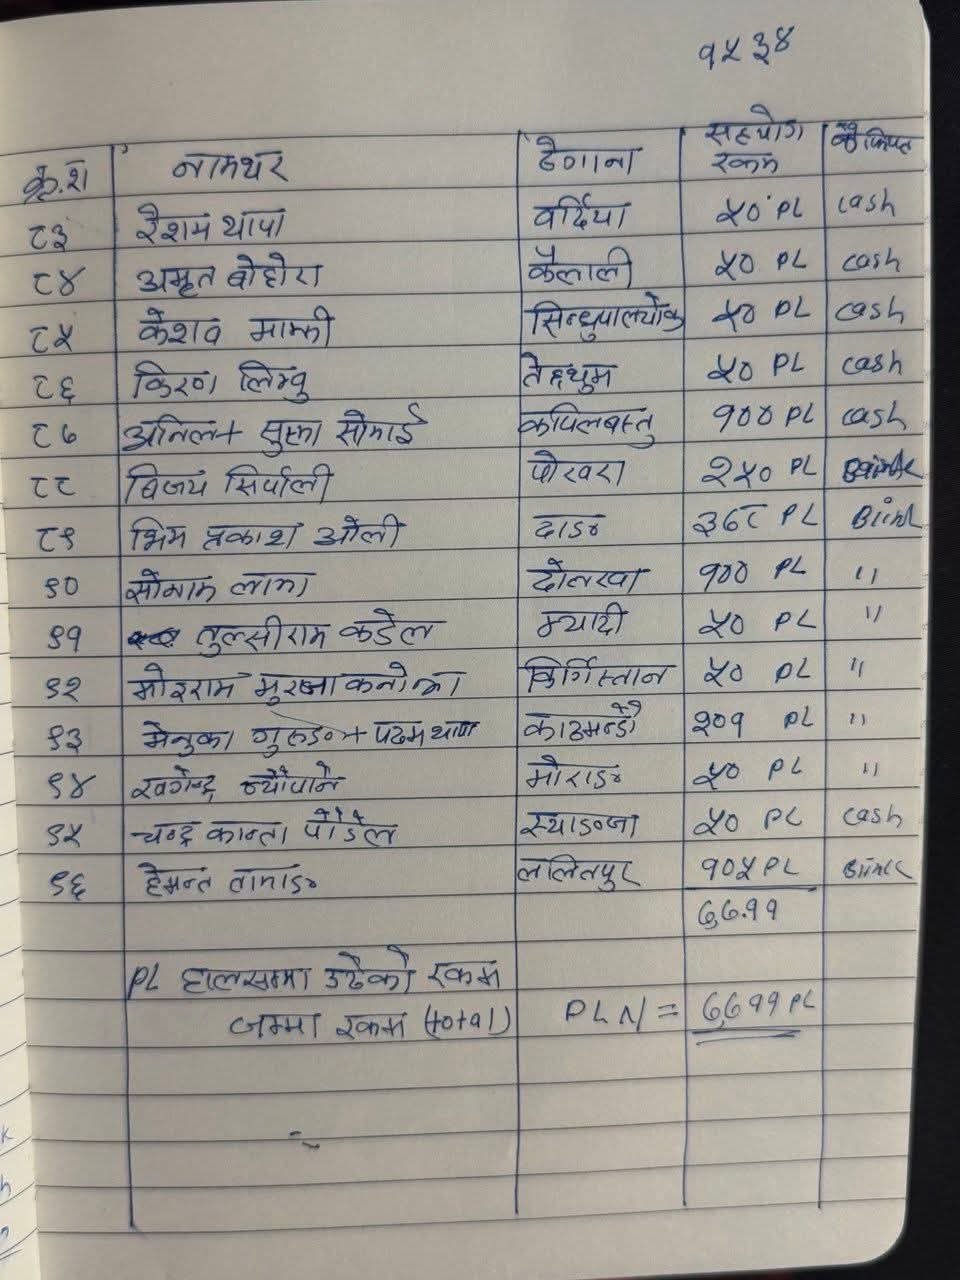 १५३४
क्र.श नामथर ठेगाना सहयोग रकम कैफियत
८३ रेशम थापा वर्दिया ५० PL cash
८४ अमृत वोहोरा कैलाली ५० PL cash
८५ केशव माझी सिन्धुपाल्चोक ५० PL cash
८६ किरण लिम्वु तेह्थुम ५० PL cash
८७ अनिल + सोमाई कपिलबस्तु १०० PL cash
८८ विजय सिर्पाली पोखरा २५० PL
८९ भिम प्रकाश ओली दाङ ३७८ PL Blink
९० सोनाम लामा दोलखा १०० PL "
९१ तुल्सीराम कडेल म्यादी ५० PL "
९२ किर्गिस्तान ५० PL "
९३ मेनुका गुरुङ + पदम थापा काठमाण्डौ २०१ PL "
९४ खगेन्द्र न्यौपाने मोराङ ५० PL "
९५ चन्द्र कान्ता पौडेल स्याङ्जा ५० PL cash
९६ हेमन्त तामाङ ललितपुर १०५ PL Blink
७७११
PL हालसम्मा उठेको रकम
जम्मा रकम (total) PLN = ७,७११ PL